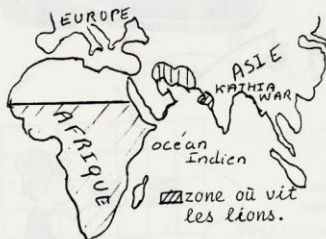 EUROPE
ASIE
KATHIA
WAR
AFRIQUE
océan
Indien
zone où vit
les lions.